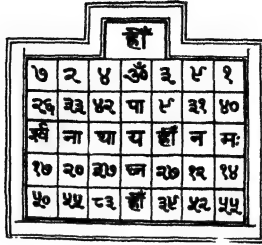 ह्रीं
७ २ ४ ॐ ३ ९ १
२६ ३३ ४२ पा ९ ३१ ४०
ना था य ह्रीं न मः
१७ २० २७ २७ १२ १४
५० ५५ ८३ ह्रौं ३९ ५२ ५५